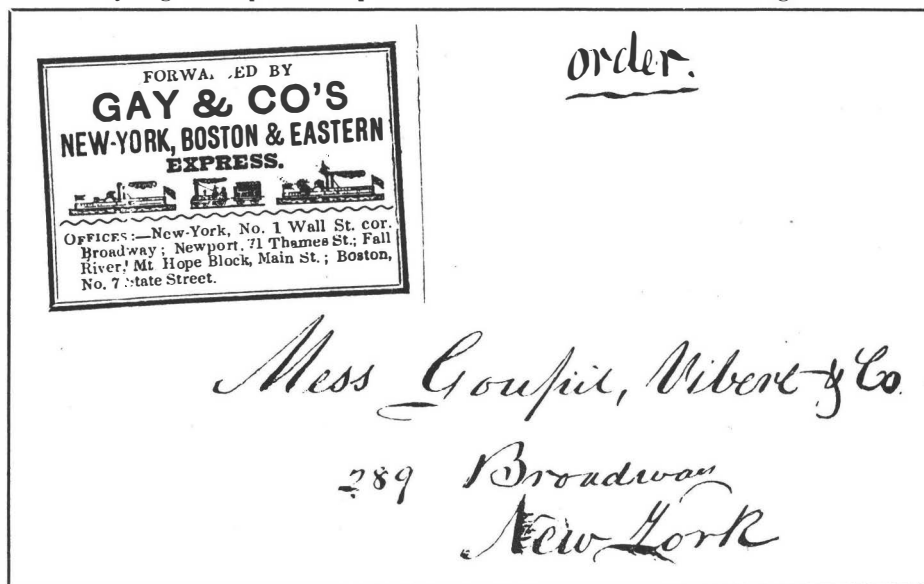 FORWA, .ED BY
GAY & CO'S
NEW-YORK, BOSTON & EASTERN
EXPRESS.
OFFICES:—New-York, No. 1 Wall St. cor.
Broadway; Newport, 71 Thames St.; Fall
River, Mt Hope Block, Main St.; Boston,
No. 7 State Street.
order.
Mess Goupil, Vibert & Co.
289 Broadway
New York